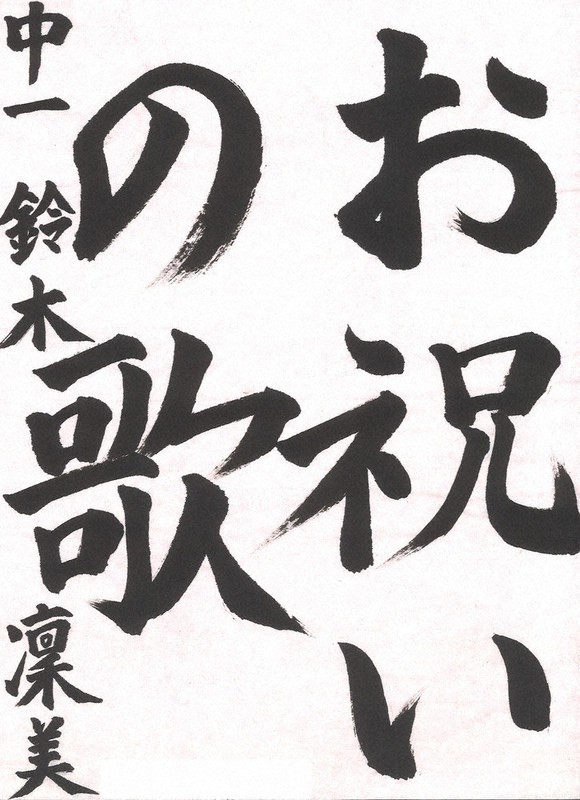 お祝い
の歌
中一 鈴木凜美